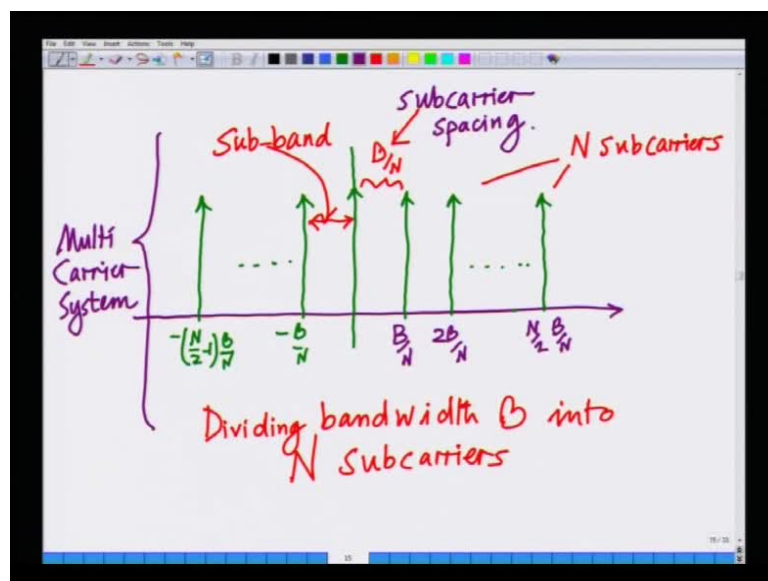 File Edit View Insert Actions Tools Help
subcarrier
spacing.
Sub-band
B/N
N subcarriers
Multi
Carrier
System
-(N/2-1)B/N
-B/N
B/N
2B/N
N/2 B/N
Dividing bandwidth B into
N subcarriers
15